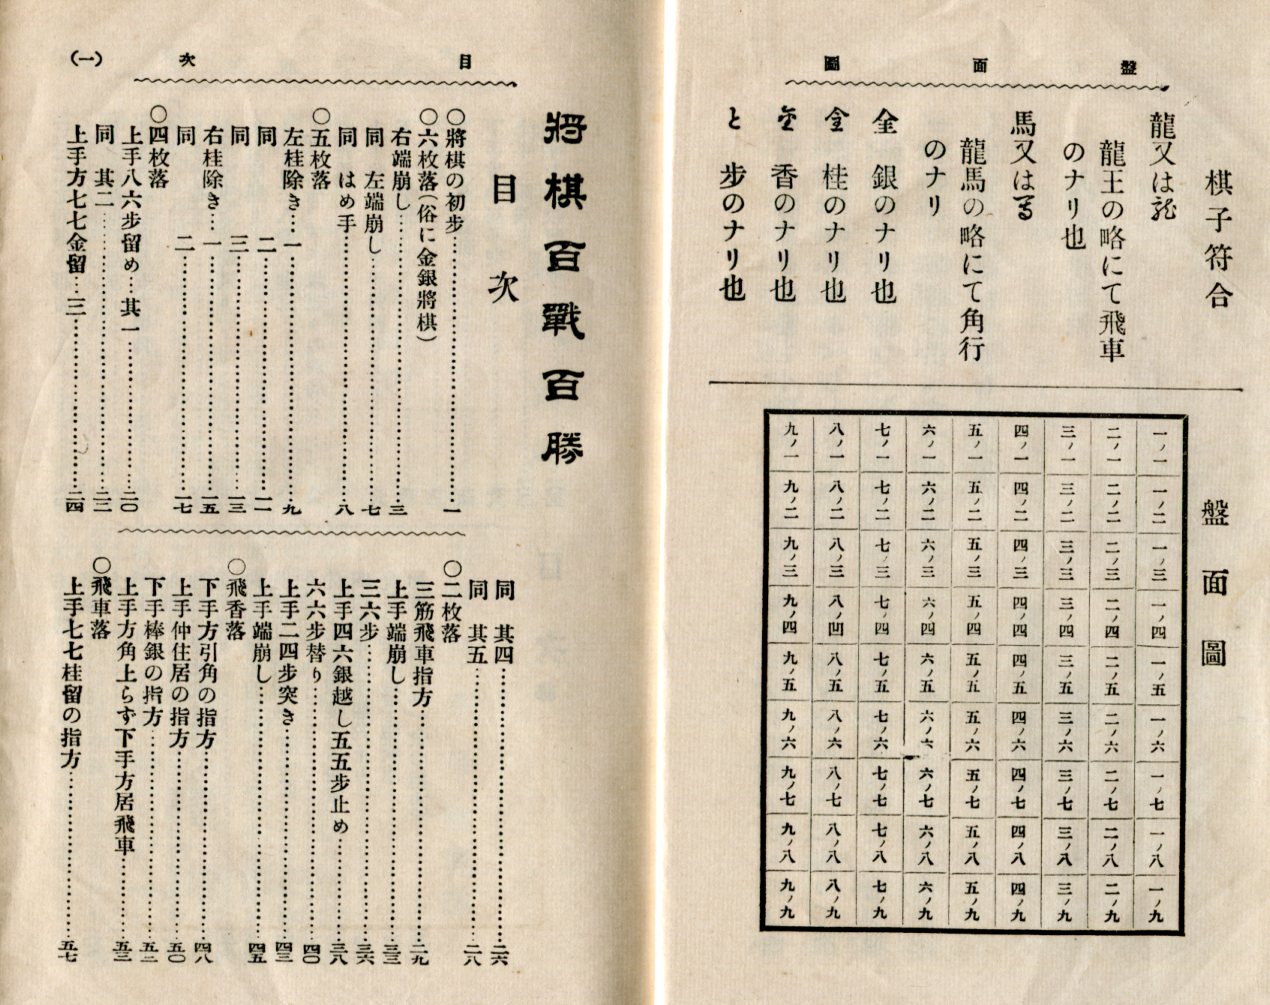 盤面圖
棋子符合
龍又は
龍王の略にて飛車
のナリ也
馬又は
龍馬の略にて角行
のナリ
全 銀のナリ也
桂のナリ也
香のナリ也
と 步のナリ也
盤面圖
一ノ一 一ノ二 一ノ三 一ノ四 一ノ五 一ノ六 一ノ七 一ノ八 一ノ九
二ノ一 二ノ二 二ノ三 二ノ四 二ノ五 二ノ六 二ノ七 二ノ八 二ノ九
三ノ一 三ノ二 三ノ三 三ノ四 三ノ五 三ノ六 三ノ七 三ノ八 三ノ九
四ノ一 四ノ二 四ノ三 四ノ四 四ノ五 四ノ六 四ノ七 四ノ八 四ノ九
五ノ一 五ノ二 五ノ三 五ノ四 五ノ五 五ノ六 五ノ七 五ノ八 五ノ九
六ノ一 六ノ二 六ノ三 六ノ四 六ノ五 六ノ六 六ノ七 六ノ八 六ノ九
七ノ一 七ノ二 七ノ三 七ノ四 七ノ五 七ノ六 七ノ七 七ノ八 七ノ九
八ノ一 八ノ二 八ノ三 八ノ凹 八ノ五 八ノ六 八ノ七 八ノ八 八ノ九
九ノ一 九ノ二 九ノ三 九ノ四 九ノ五 九ノ六 九ノ七 九ノ八 九ノ九
目次
（一）
將棋百戰百勝
目次
〇將棋の初步……一
〇六枚落（俗に金銀將棋）
右端崩し……三
同 左端崩し……七
同 はめ手……八
〇五枚落
左桂除き…一……九
同 二……一一
同 三……一三
右桂除き…一……一五
同 二……一七
〇四枚落
上手八六步留め…其一……二〇
同 其二……二二
上手方七七金留…三……二四
同 其四……二六
同 其五……二八
〇二枚落
三筋飛車指方……二九
上手端崩し……三三
三六步……三六
上手四六銀越し五五步止め……三八
六六步替り……四〇
上手二四步突き……四三
上手端崩し……四五
〇飛香落
下手方引角の指方……四八
上手仲住居の指方……五〇
下手棒銀の指方……五二
上手方角上らず下手方居飛車……五三
〇飛車落
上手七七桂留の指方……五七